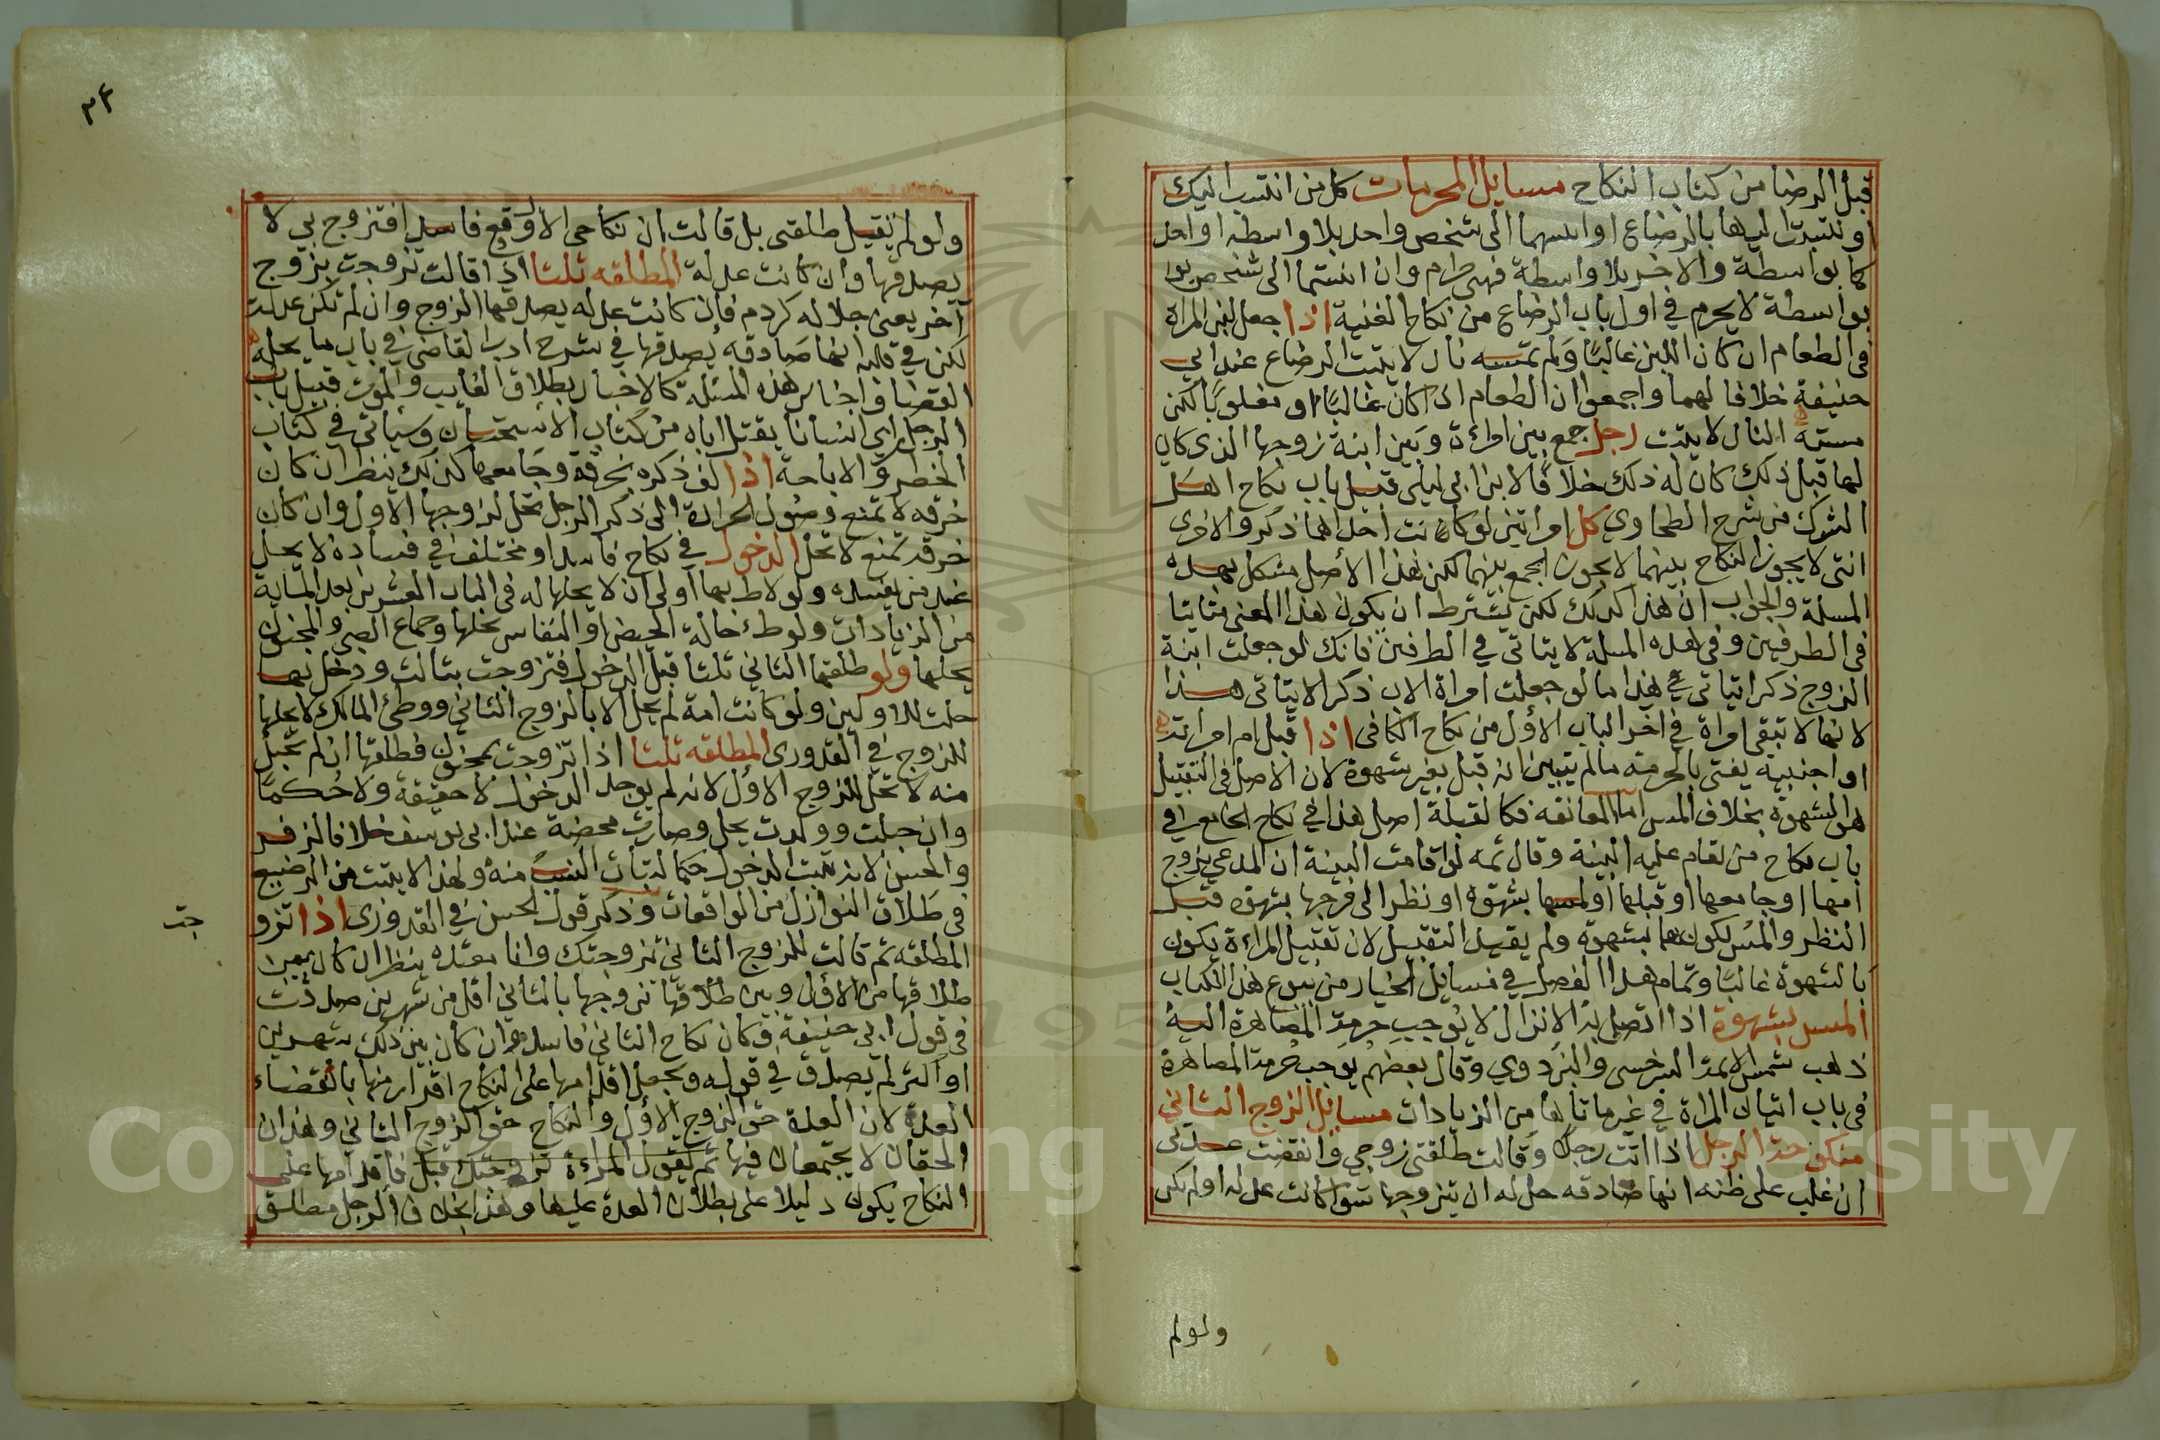 قبل الرضا من كتاب النكاح مسايل المحرمات كل من انتسب اليك
او نتسبت اليها بالرضاع او انتسبهما الى شخص واحد بلا واسطه او احد
كما بواسطة والاخر بلا واسطة فهى حرام وان انتسبتما الى شخص
بواسطة لا يحرم في اول باب الرضاع من نكاح الغنية اذا جعل لبن المراة
فى الطعام ان كان اللبن غالبا ولم تمسه نار لا يثبت الرضاع عند ابي
حنيفة خلافا لهما واجمعوا ان الطعام اذا كان غالبا او مغلوبا لكن
مسته النار لا يثبت رجل جمع بين امراة وبين ابنة زوجها الذى كان
لها قبل ذلك كان له ذلك خلافا لابن ابى ليلى قبيل باب نكاح اهل
الشرك من شرح الطحاوي كل امراتين لو كانت احداهما ذكر والاخرى
انثى لا يجوز النكاح بينهما لا يجوز الجمع بينهما لكن هذا الأصل مشكل بهذه
المسلة والجواب ان هذا كذلك لكن يشترط ان يكون هذا المعنى متاتيا
فى الطرفين وفى هذه المسلة لا يتاتى في الطرفين فانك لو جعلت ابنة
الزوج ذكرا يتاتى هذا اما لو جعلت امراة الاب ذكرا لا يتاتى هذا
لانها لا تبقى امراة في اخر الباب الاول من نكاح الكافى اذا قبل ام امراته
او اجنبيه يفتى بالحرمة ما لم يتبين انه قبل بغير شهوة لان الاصل فى التقبيل
هو الشهوة بخلاف المس اما المعانقه فكالقبلة اصل هذا في نكاح الجامع في
باب نكاح من تقام عليه البينة وقال ثمه لو اقامت البينة ان المدعي تزوج
امها او جامعها او قبلها او لمسها بشهوة او نظر الى فرجها بشهوة قيد
النظر والمس بكونهما بشهوة ولم يقيد التقبيل لان تقبيل المراءة يكون
بالشهوة غالبا وتمام هذا الفصل في مسايل الخيار من بيوع هذا الكتاب
المس بشهوة اذا اتصل به الانزال لا يوجب حرمة المصاهرة اليه
ذهب شمس الايمة السرخسى والبزدوي وقال بعضهم يوجب حرمة المصاهرة
فى باب اتيان المراة في غير ماتاها من الزيادات مسايل الزوج الثاني
اذا اتت رجلا وقالت طلقنى زوجي وانقضت عدتى
ان غلب على ظنه انها صادقه حل له ان يتزوجها سوا كانت عدله او لم تكن
ولولم
٣٤
ولو لم تقيل طلقنى بل قالت ان نكاحى الاول وقع فاسدا فتزوج بي لا
يصدقها وان كانت عدلة المطلقه ثلثا اذا قالت تزوجت بزوج
آخر يعنى حلاله كردم فان كانت عدله يصدقها الزوج وان لم تكن عدلة
لكن في قلبه انها صادقه يصدقها في شرح ادب القاضى في باب ما يحله
القضا واجناس هذه المسئلة كالاخبار بطلاق الغايب والموت قبيل باب
الرجل راى انسانا يقتل اباه من كتاب الاستحسان وسياتى في كتاب
الحظر والاباحة اذا لف ذكره بخرقة وجامعها كذلك ينظر ان كان
خرقه لا تمنع وصول الحرارة الى ذكر الرجل تحل لزوجها الاول وان كان
خرقه تمنع لا تحل الدخول في نكاح فاسد او مختلف في فساده لا يحل
عند من يفسده ولو لاط بها اولى ان لا يحلها له فى الباب العشرين بعد المائة
من الزيادات ولو طء حالة الحيض او النفاس يحلها وجماع الصبي والمجنون
يحلها ولو طلقها الثاني ثلثا قبل الدخول فتزوجت بثالث ودخل بها
حلت للاولين ولو كانت امة لم يحل الا بالزوج الثاني ووطئ المالك لا يحلها
للزوج في القدورى المطلقه ثلثا اذا تزوجت بمجنون فطلقها ان لم تحبل
منه لا تحل للزوج الاول لانه لم يوجد الدخول لا حقيقة ولا حكما
وان حبلت وولدت يحل وصارت محصنة عند ابى يوسف خلافا لزفر
والحسن لانه يثبت الدخول حكما لثبات النسب منه ولهذا لا يثبت من الرضيع
فى طلاق النوازل من الواقعات وذكر قول الحسن في القدورى اذا تزو
جت
المطلقه ثم قالت للزوج الثانى تزوجتك وانا معتده ينظر ان كان بين
طلاقها من الاول وبين طلاقها تزوجها بالثاني اقل من شهرين صدقت
فى قول ابي حنيفة فكان نكاح الثاني فاسدا وان كان بين ذلك شهرين
او اكثر لم يصدق في قوله وجعل اقدامها على النكاح اقرار منها بانقضاء
العدة لان العدة حق الزوج الاول والنكاح حق الزوج الثاني وهذان
الحقان لا يجتمعان فيها ثم يقول المراءة تزوجتك قبل فاقدامها على
النكاح يكون دليلا على بطلان العدة عليها وهذا بخلاف الرجل مطلق